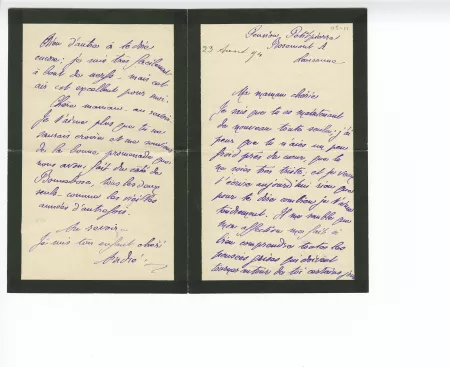 Pension Petitpierre
Rosemont 1
Lausanne
23 Avril 94
Ma maman chérie
Je sais que tu es maintenant
de nouveau toute seule; j'ai
peur que tu n'aies un peu
froid près du cœur, que tu
ne sois très triste, et je
t'écris aujourd'hui rien que
pour te dire combien je t'aime
tendrement. Il me semble que
mon affection me fait si
bien comprendre toutes les
pensées grises qui doivent
tourner autour de toi certains
Rien d'autre à te dire
encore; je suis très facilement
à bout de nerfs - mais cet
air est excellent pour moi.
Chère maman, au revoir.
Je t'aime plus que tu ne
saurais croire et me souviens
de la bonne promenade que
nous avons fait du côté de
tous les deux
seuls - comme les vieilles
années d'autrefois.
Au revoir -
Je suis ton enfant chéri
André